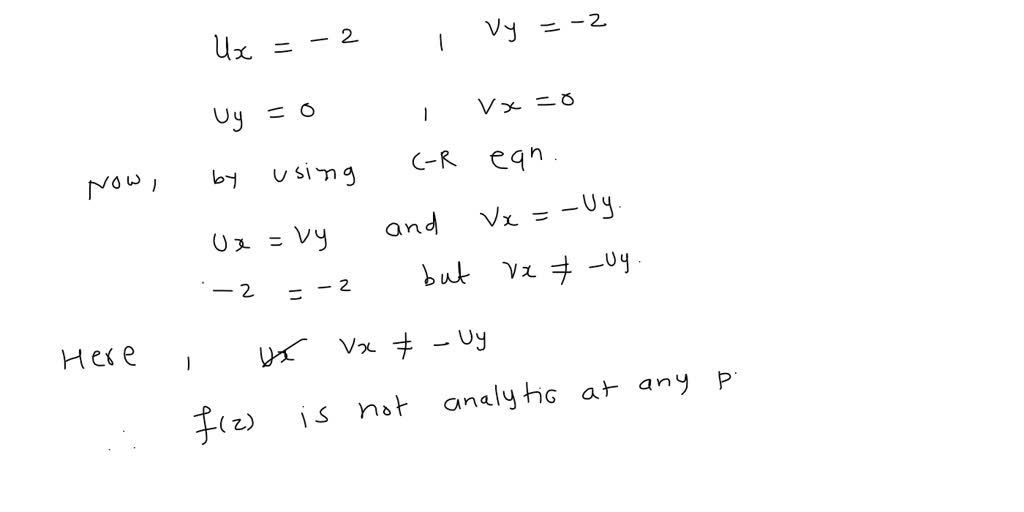 Ux = -2 , Vy = -2
Uy = 0 , Vx = 0
Now, by using C-R eqn.
Ux = Vy and Vx = -Uy.
-2 = -2 but Vx ≠ -Uy.
Here, Vx ≠ -Uy
∴ f(z) is not analytic at any